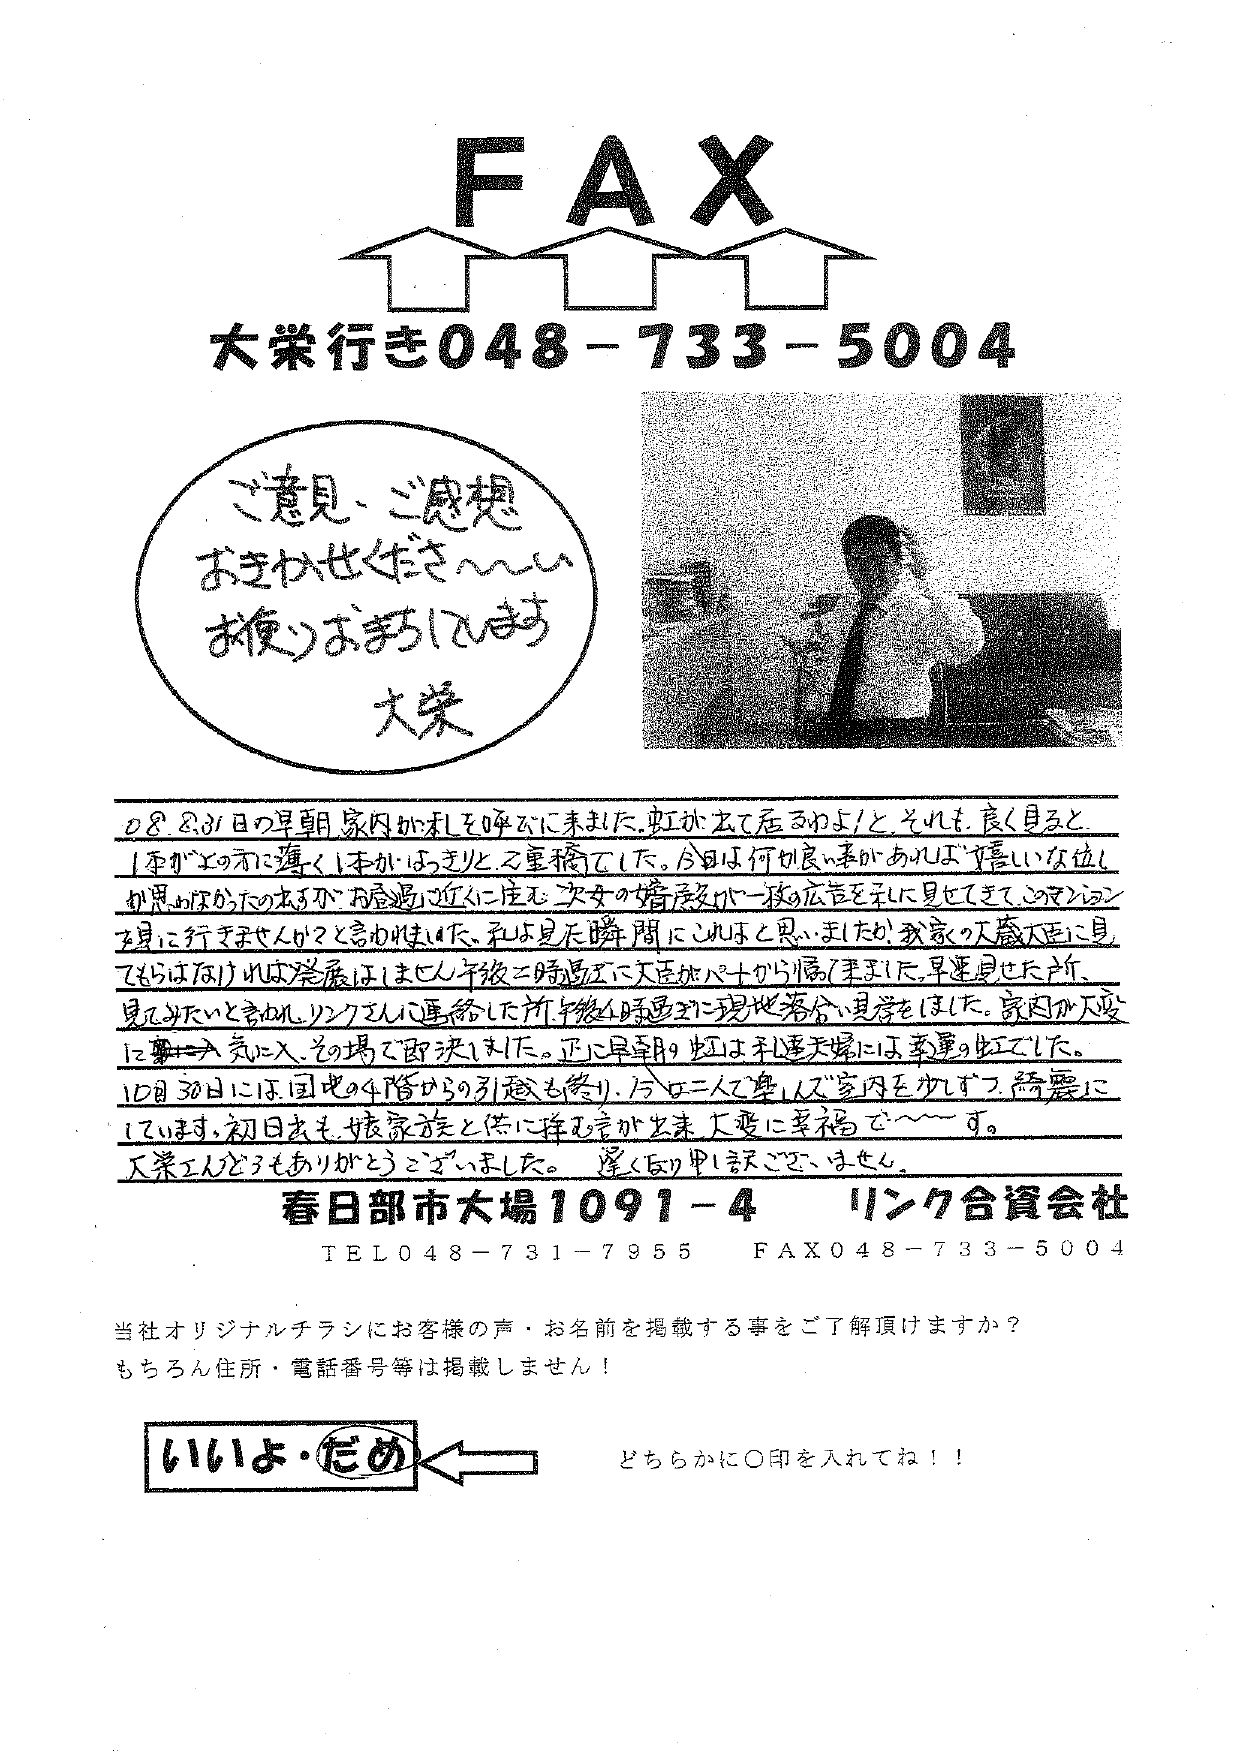 FAX
大栄行き048-733-5004
ご意見、ご感想
おきかせくださ～～い
お便りおまちしています
大栄
08.8.31日の早朝、家内が私を呼びに来ました。虹が出て居るわよ!と、それも、良く見ると、
1本が上の方に薄く1本がはっきりと、二重橋でした。今日は何か良い事があれば嬉しいな位し
か思わなかったのですが、お昼過に近くに住む次女の婿殿が一枚の広告を私に見せてきて、このマンション
を見に行きませんか?と言われました。私は見た瞬間にこれはと思いましたが、我家の大蔵大臣に見
てもらはなければ発展はしません午後二時過ぎに大臣がパートから帰って来ました。早速見せた所、
見てみたいと言われ、リンクさんに連絡した所、午後4時過ぎに現地落合い見学をしました。家内が大変
に気に入、その場で即決しました。正に早朝の虹は私達夫婦には幸運の虹でした。
10月30日には、団地の4階からの引越も終り、今は二人で楽しんで室内を少しずつ、綺麗に
しています。初日出も、娘家族と供に拝む言が出来、大変に幸福で～～す。
大栄さんどうもありがとうございました。 遅くなり申し訳ございません。
春日部市大場1091-4 リンク合資会社
TEL048-731-7955 FAX048-733-5004
当社オリジナルチラシにお客様の声・お名前を掲載する事をご了解頂けますか?
もちろん住所・電話番号等は掲載しません!
いいよ・だめ どちらかに○印を入れてね!!